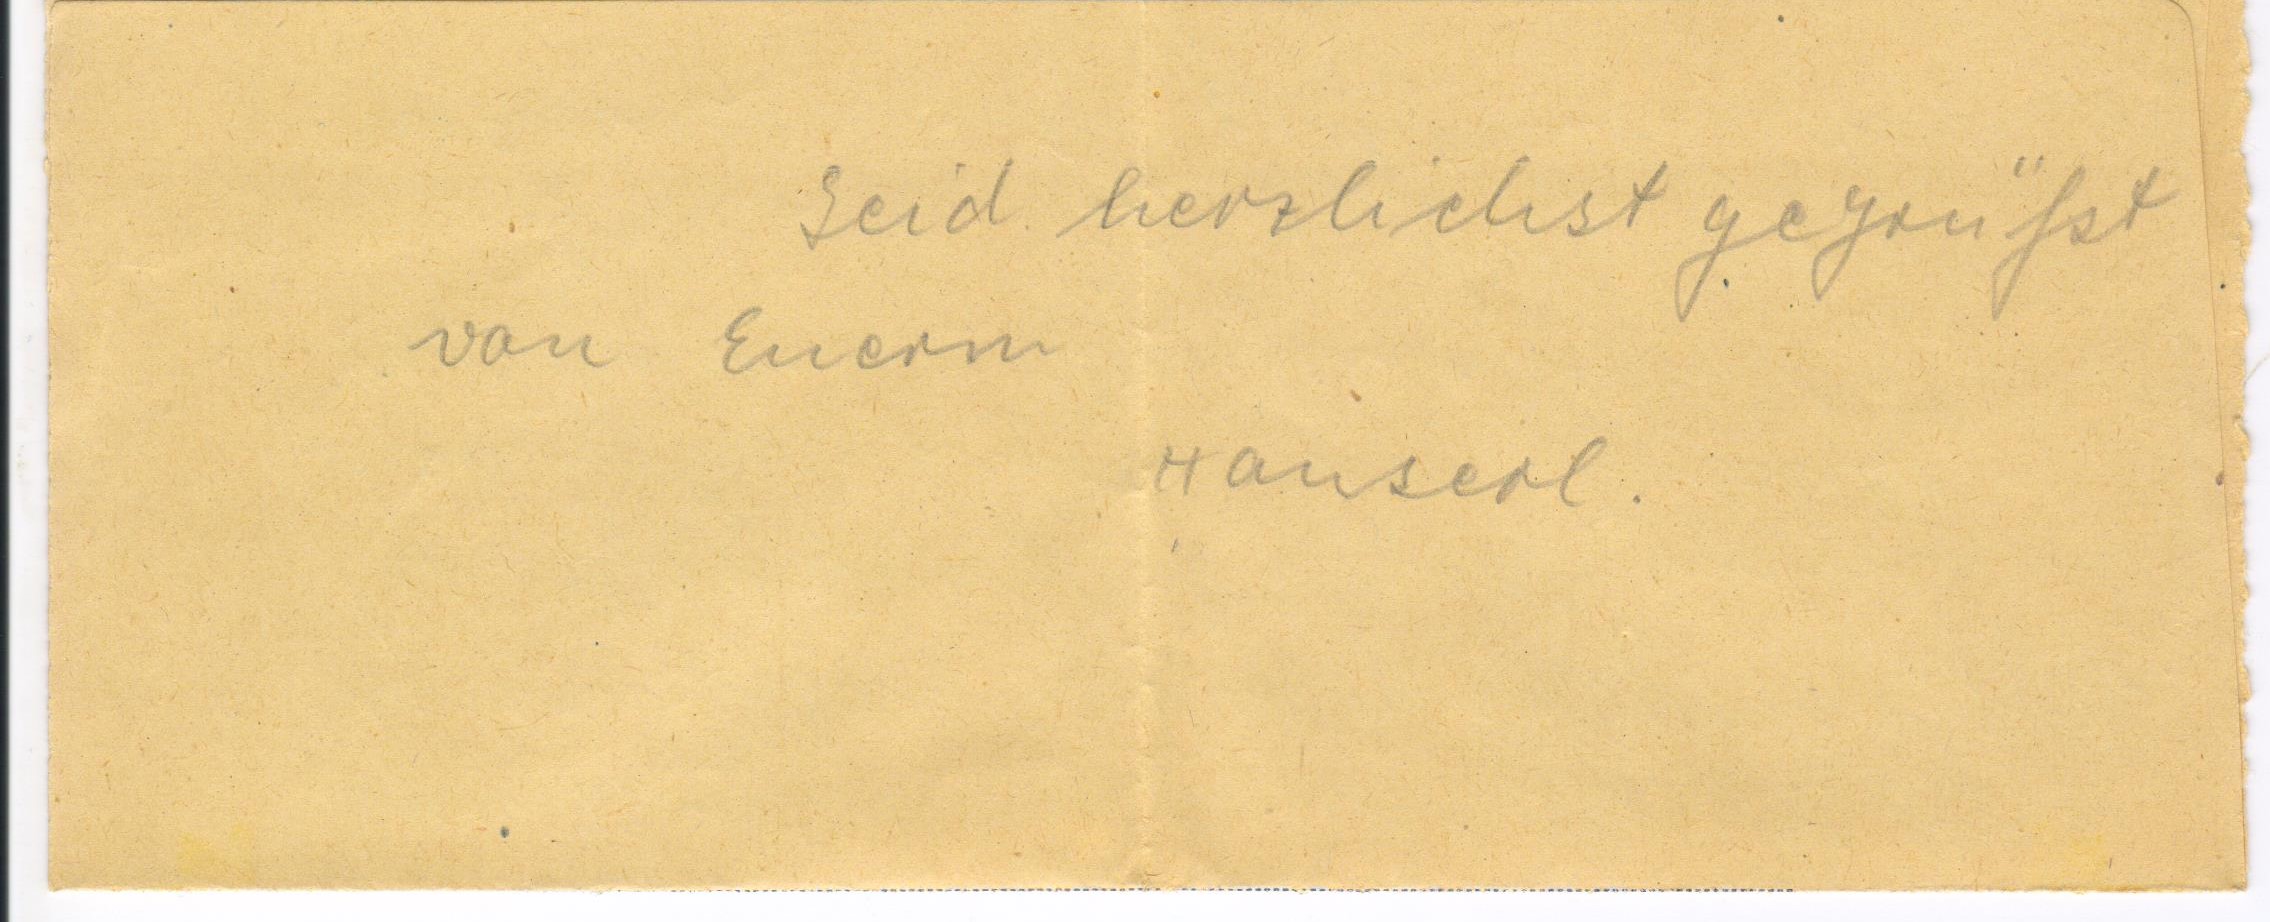 Seid herzlichst gegrüßt
von Euerm
Hanserl.